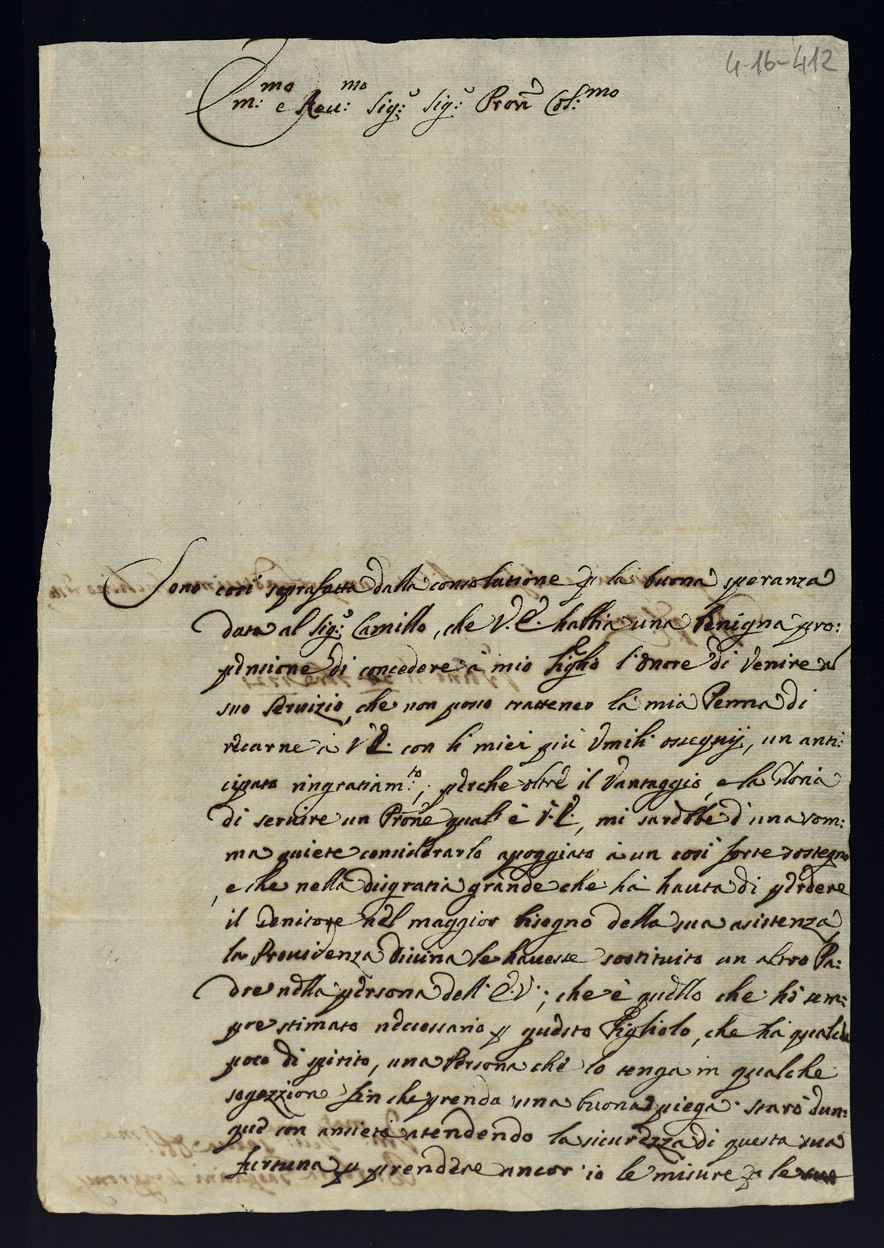 4-16-412
Em:mo e Reu:mo Sig:r Sig:r Pron Col:mo
Sono così soprafatta dalla consolatione p la buona speranza
data al Sig:r Camillo, che V.E. habbia una benigna pro:
pensione di concedere a mio figlio l'onore di venire a
suo servizio, che non posso trattener la mia Penna di
recarne à V.E. con li miei più vmili ossequij, un anti:
cipato ringratiam:to, perche oltre il vantaggio, e la gloria
di servire un Prone qual è V.E., mi sarebbe d'una som:
ma quiete considerarlo apoggiato à un così forte sostegno
, e che nella disgratia grande che hà hauta di perdere
il Genitore nel maggior bisogno della sua asistenza
la Providenza Divina le hauesse sostituito un altro Pa:
dre nella persona dell' E.V.; che è quello che hò sem:
pre stimato necessario p questo figliolo, che hà qualche
poco di spirito, una Persona che lo tenga in qualche
sogezzione fin che prenda una buona piega. starò dun:
que con ansietà atendendo la sicurezza di questa sua
fortuna p prendere ancor io le misure p le